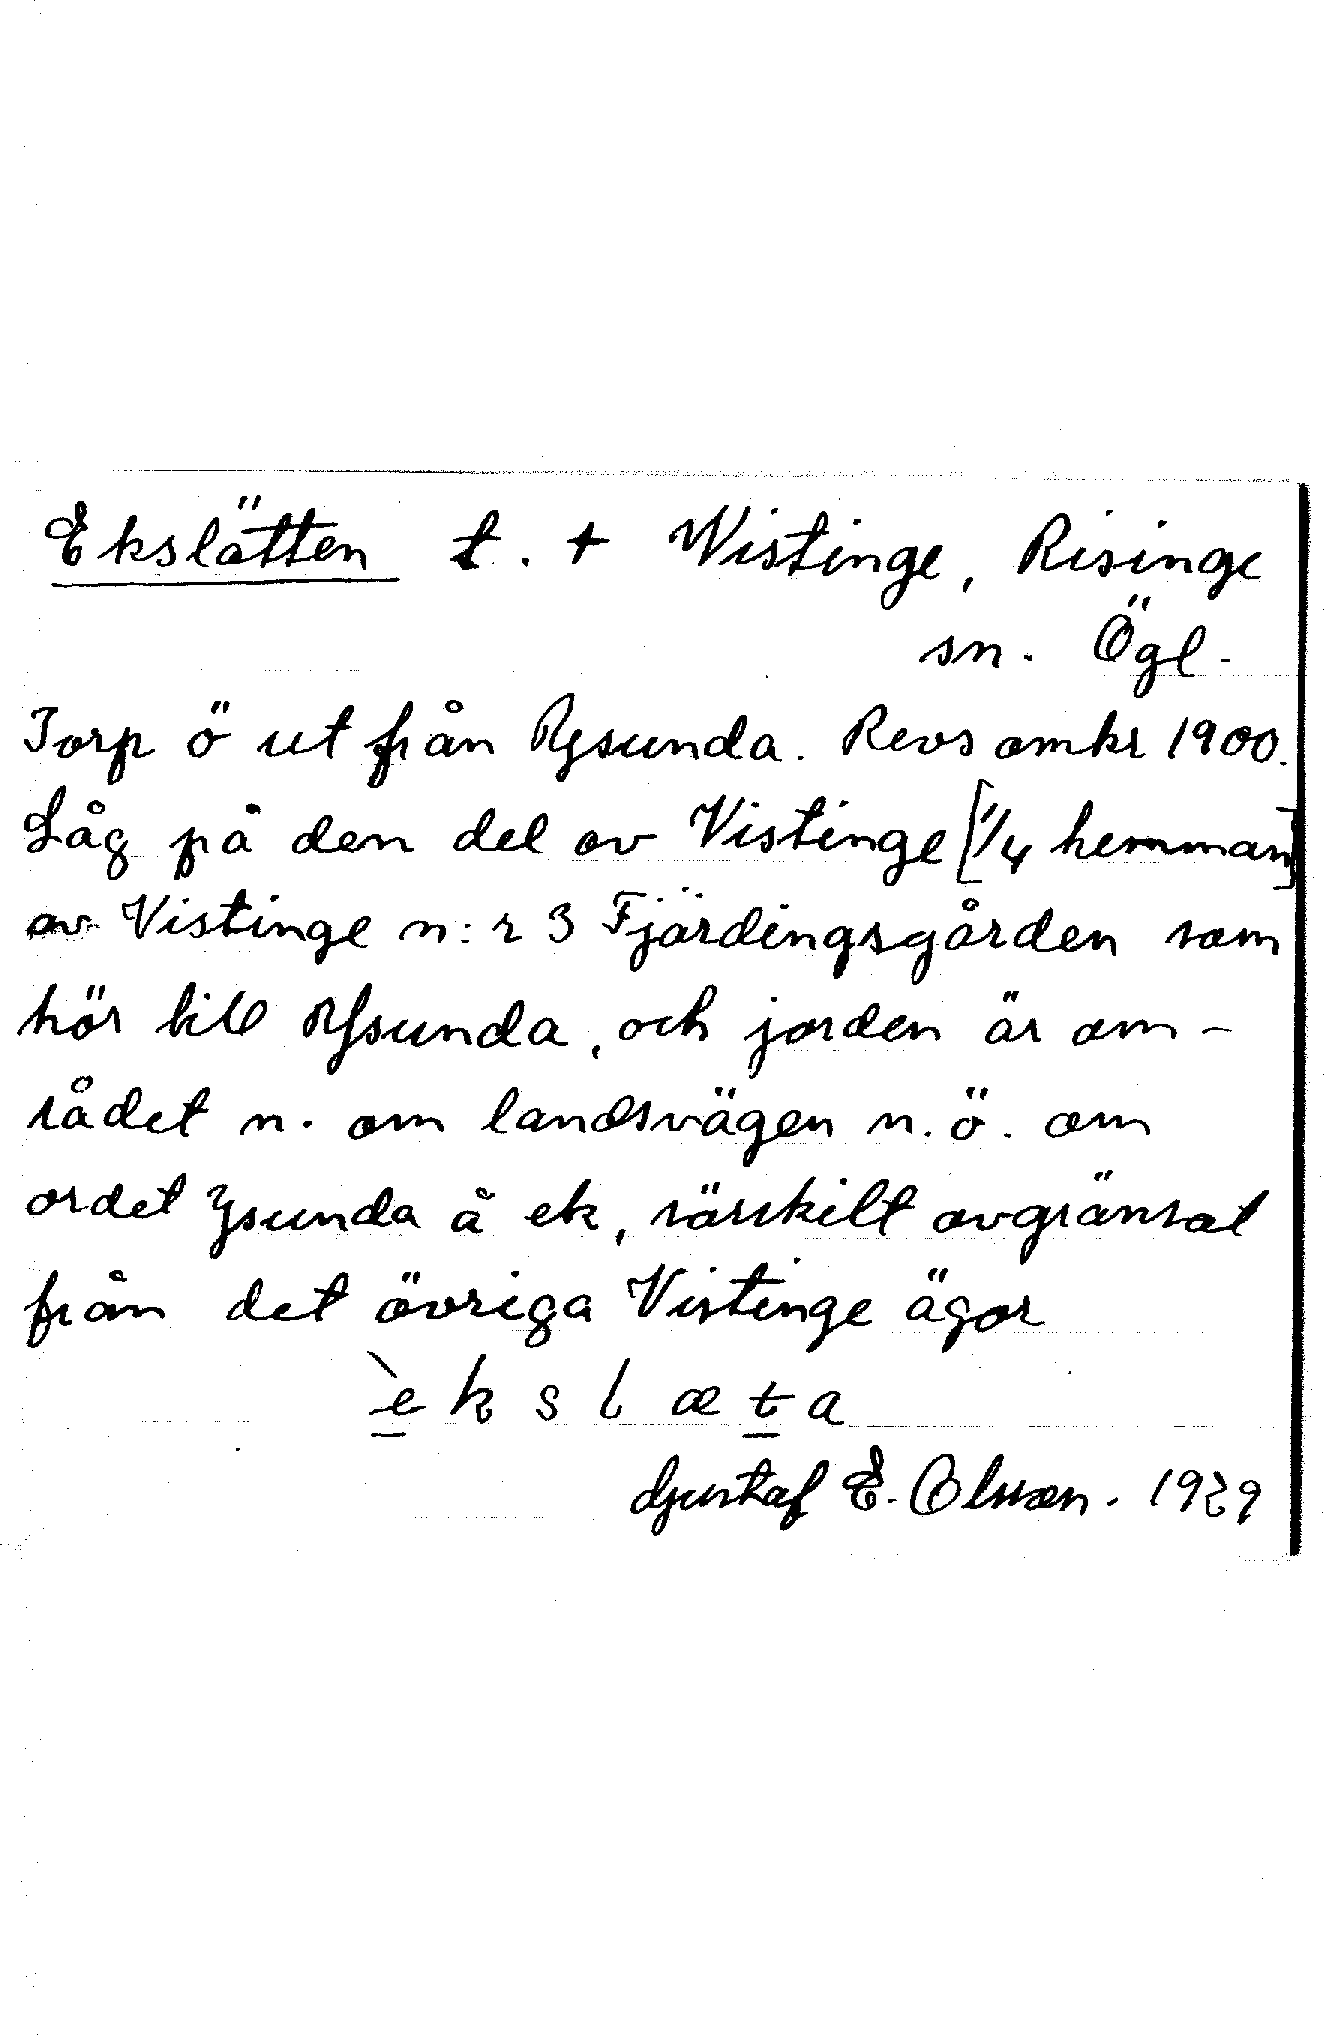 Ekslätten t. + Wistinge, Risinge
sn. Ögl.
Torp ö ut från Rysunda. Revs omkr 1900.
Låg på den del av Vistinge [1/4 hemman]
av Vistinge n:r 3 Fjärdingsgården som
hör till Rysunda, och jorden är om-
rådet n. om landsvägen n.ö. om
ordet Ysunda å ek, särskilt avgränsat
från det övriga Vistinge ägor
̀e k s l æ t a
Gustaf E. Olsson. 1929